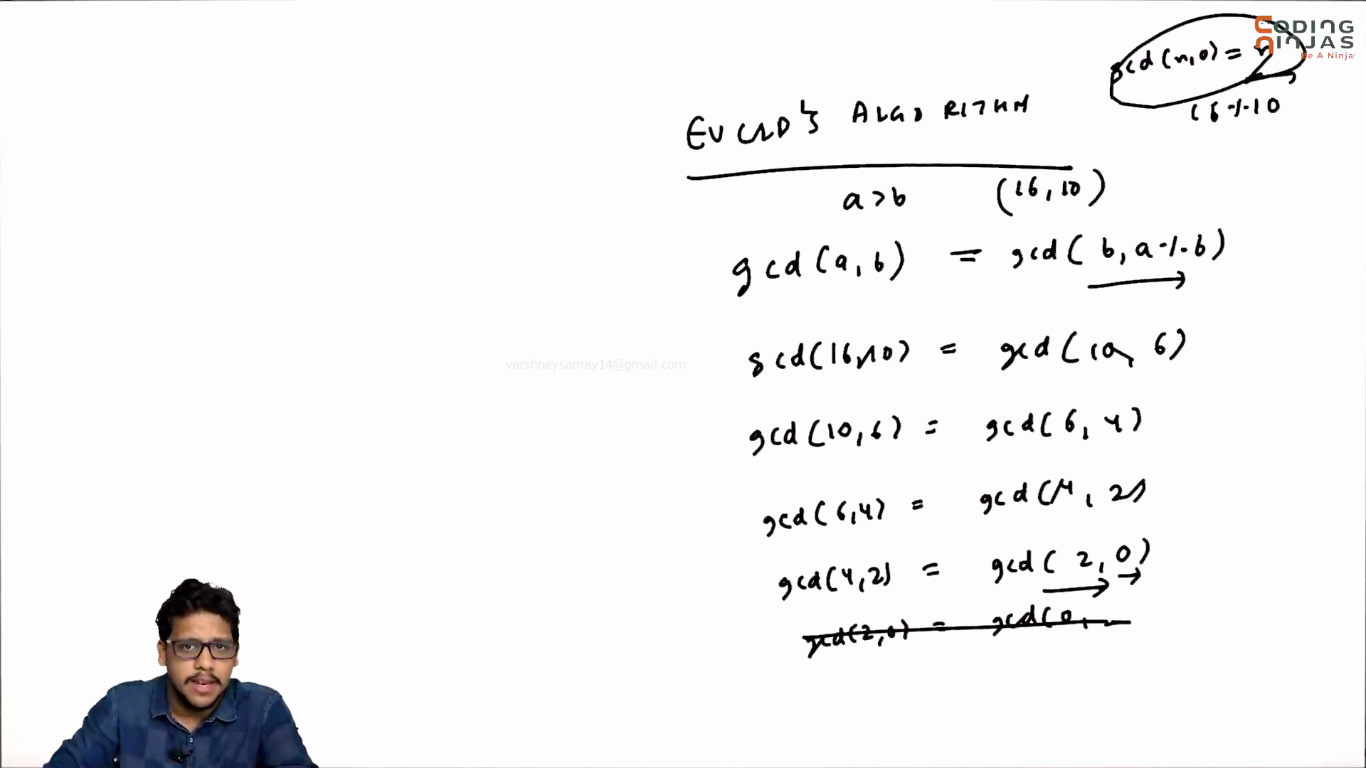 CODING
NINJAS
Be A Ninja!
gcd(n,0) = n
16%10
EUCLID'S ALGORITHM
a>b (16,10)
gcd(a,b) = gcd(b,a%b)
gcd(16,10) = gcd(10, 6)
varshneysamay14@gmail.com
gcd(10,6) = gcd(6,4)
gcd(6,4) = gcd(4,2)
gcd(4,2) = gcd(2,0)
gcd(2,0) = gcd(0,